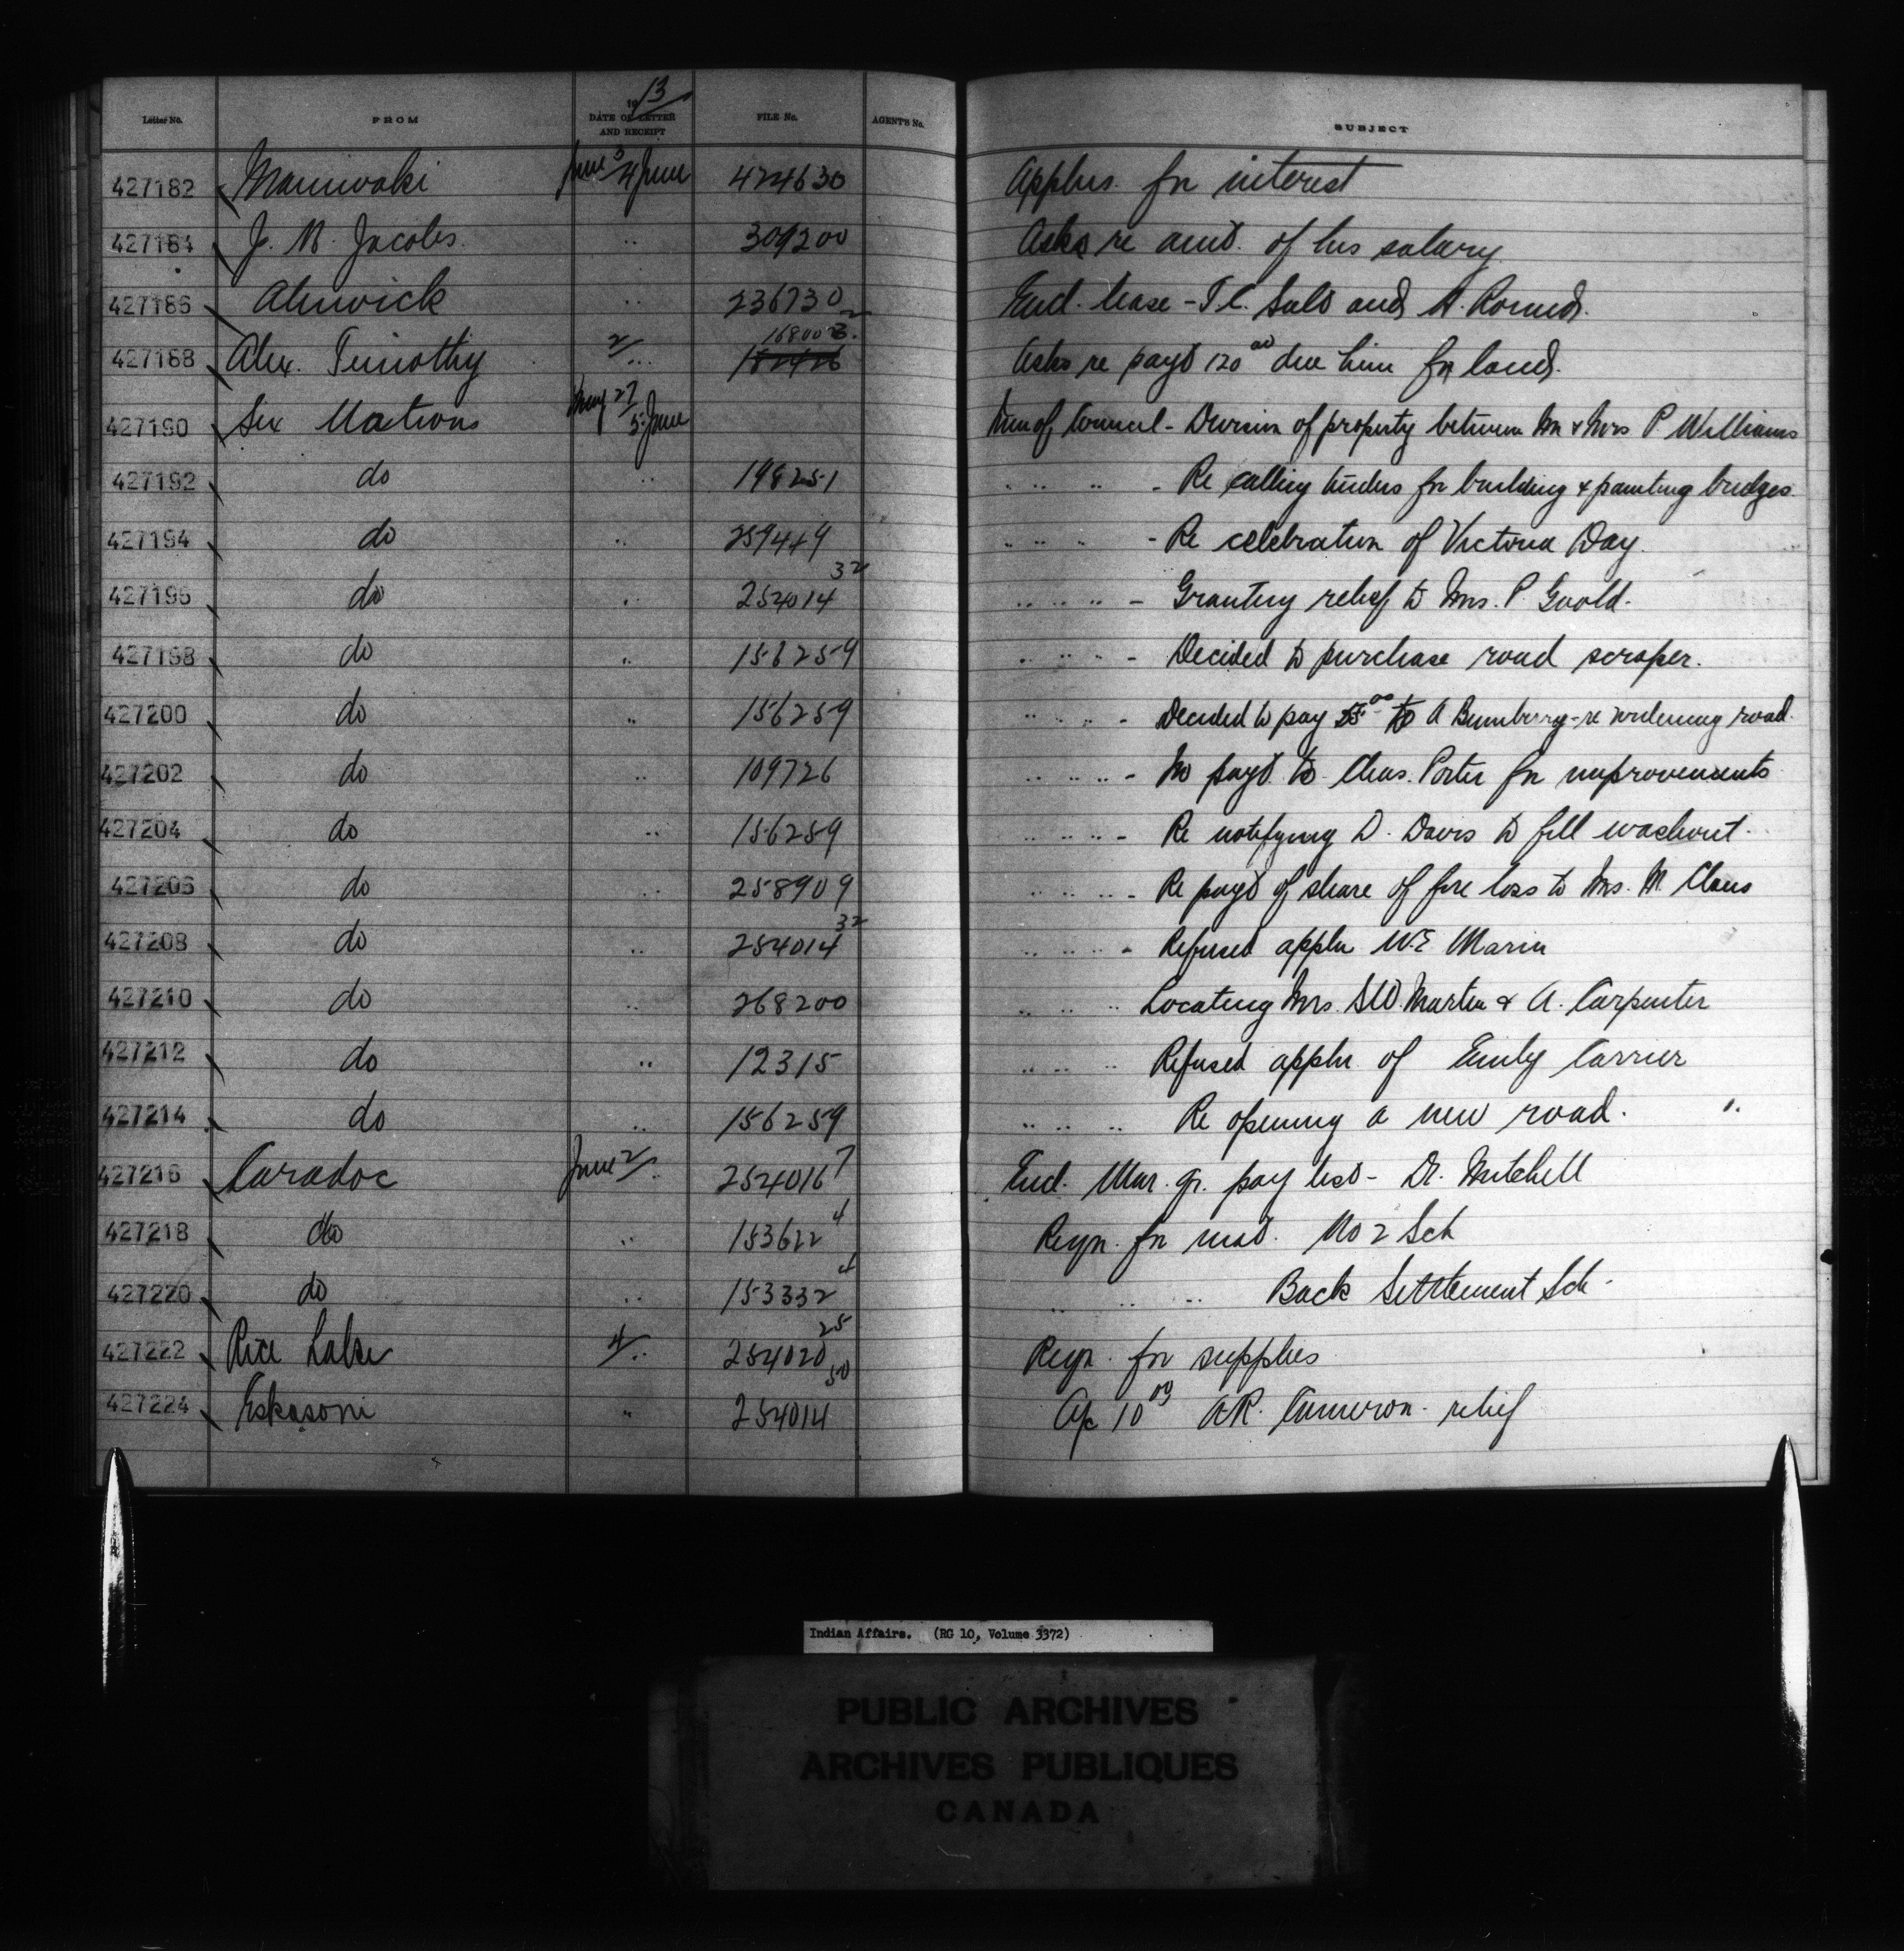 Letter No. FROM 1913 DATE OF LETTER AND RECEIPT FILE No. AGENT'S No. SUBJECT
427182 Maniwaki June 3/4 June 424630 Applns. for interest
427184 J. N. Jacobs. " 309200 Asks re amt. of his salary
427186 Alnwick " 236730 2 Encl. lease - T.C. Sult and A. Round.
427188 Alex. Timothy 2/ " 168002. Asks re payt 120 00 due him for land.
427190 Six Nations May 27/ 5 June Min of Council - Division of property between Mr & Mrs P. Williams
427192 do " 198251 " " " - Re calling tenders for building & painting bridges
427194 do " 259449 " " " - Re celebration of Victoria Day.
427196 do " 254014 32 " " " " - Granting relief to Mrs. P. Goold.
427198 do " 156259 " " " " - Decided to purchase road scraper.
427200 do " 156259 " " " - Decided to pay 55 00 to A Bumberry - re widening road.
427202 do " 109726 " " " " - No payt. to Chas. Porter for improvements
427204 do " 156259 " " " " - Re notifying D. Davis to fill washout.
427206 do " 258909 " " " " - Re payt of share of fire loss to Mrs. M Claus
427208 do " 254014 32 " " " " - Refused appln W.E
427210 do " 268200 " " " Locating Mrs. S.W. Martin & A. Carpenter
427212 do " 12315 " " " Refused appln. of Emily Carrier
427214 do " 156259 " " " Re opening a new road.
427216 Caradoc June 2/ " 254016 7 Encl. Mar. qr. pay list - Dr. Mitchell
427218 do " 153622 4 Reqn. for mat. No 2 Sch
427220 do " 153332 4 " " " Back Settlement Sch -
427222 Rice Lake 4/ " 254020 25 Reqn. for supplies
427224 Eskasoni " 254014 50 A/c 10 00 A.R. Cameron - relief
Indian Affairs. (RG 10, Volume 3372)
PUBLIC ARCHIVES
ARCHIVES PUBLIQUES
CANADA